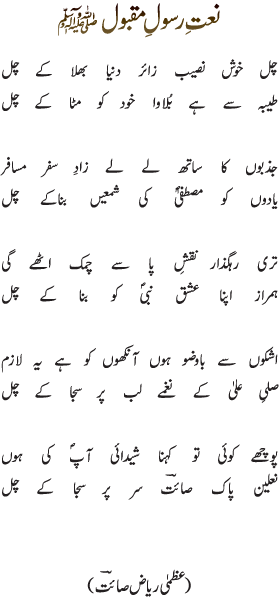 نعت رسولِ مقبول ﷺ
چل خوش نصیب زائر دنیا بھلا کے چل
طیبہ سے ہے بُلاوا خود کو مٹا کے چل
جذبوں کا ساتھ لے لے زادِ سفر مسافر
یادوں کو مصطفیؐ کی شمعیں بناکے چل
تری رہگذار نقشِ پا سے چمک اٹھے گی
ہمراز اپنا عشق نبیؐ کو بنا کے چل
اشکوں سے باوضو ہوں آنکھوں کو ہے یہ لازم
صلیِ علیٰ کے نغمے لب پر سجا کے چل
پوچھے کوئی تو کہنا شیدائی آپؐ کی ہوں
نعلین پاک صائبؔ سر پر سجا کے چل
(عظمیٰ ریاض صائبؔ)